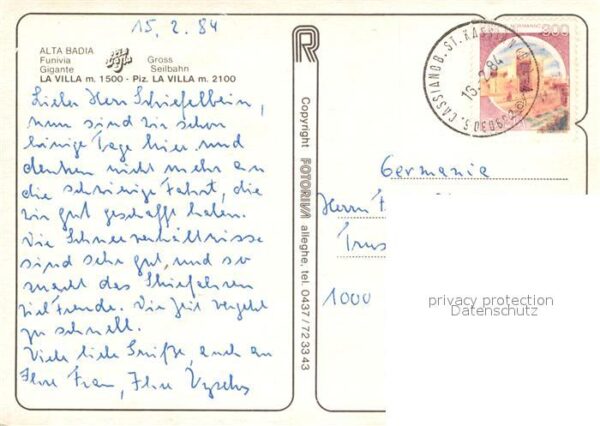 15. 2. 84
ALTA BADIA
Funivia Gross
Gigante Seilbahn
LA VILLA m. 1500 - Piz. LA VILLA m. 2100
Lieber Herr Schiefelbein,
nun sind wir schon
einige Tage hier und
denken nicht mehr an
die schwierige Fahrt, die
wir gut geschafft haben.
Die Schneeverhältnisse
sind sehr gut, und so
macht das Skifahren
viel Freude. Die Zeit vergeht
zu schnell.
Viele liebe Grüße, auch an
Ihre Frau, Ihre
R
Copyright FOTORIVA alleghe, tel. 0437/72 33 43
900
S. CASSIANO B. ST. KASSIAN
15.2.84
39030
Germania
Herrn
1000
privacy protection
Datenschutz